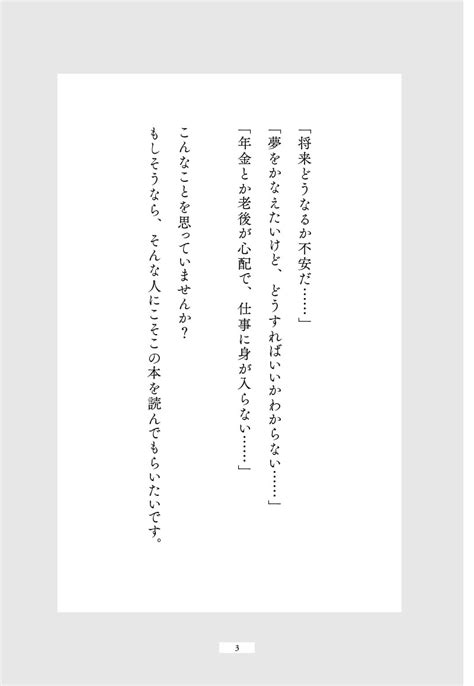 「将来どうなるか不安だ……」
「夢をかなえたいけど、どうすればいいかわからない……」
「年金とか老後が心配で、仕事に身が入らない……」
こんなことを思っていませんか？
もしそうなら、そんな人にこそこの本を読んでもらいたいです。
3